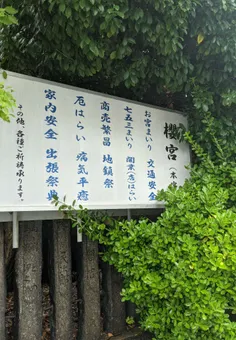 櫻宮（本
お宮まいり 交通安全
七五三まいり 開業（店）はらい
商売繁昌 地鎮祭
厄はらい 病気平癒
家内安全 出張祭典
その他、各種ご祈祷承ります。